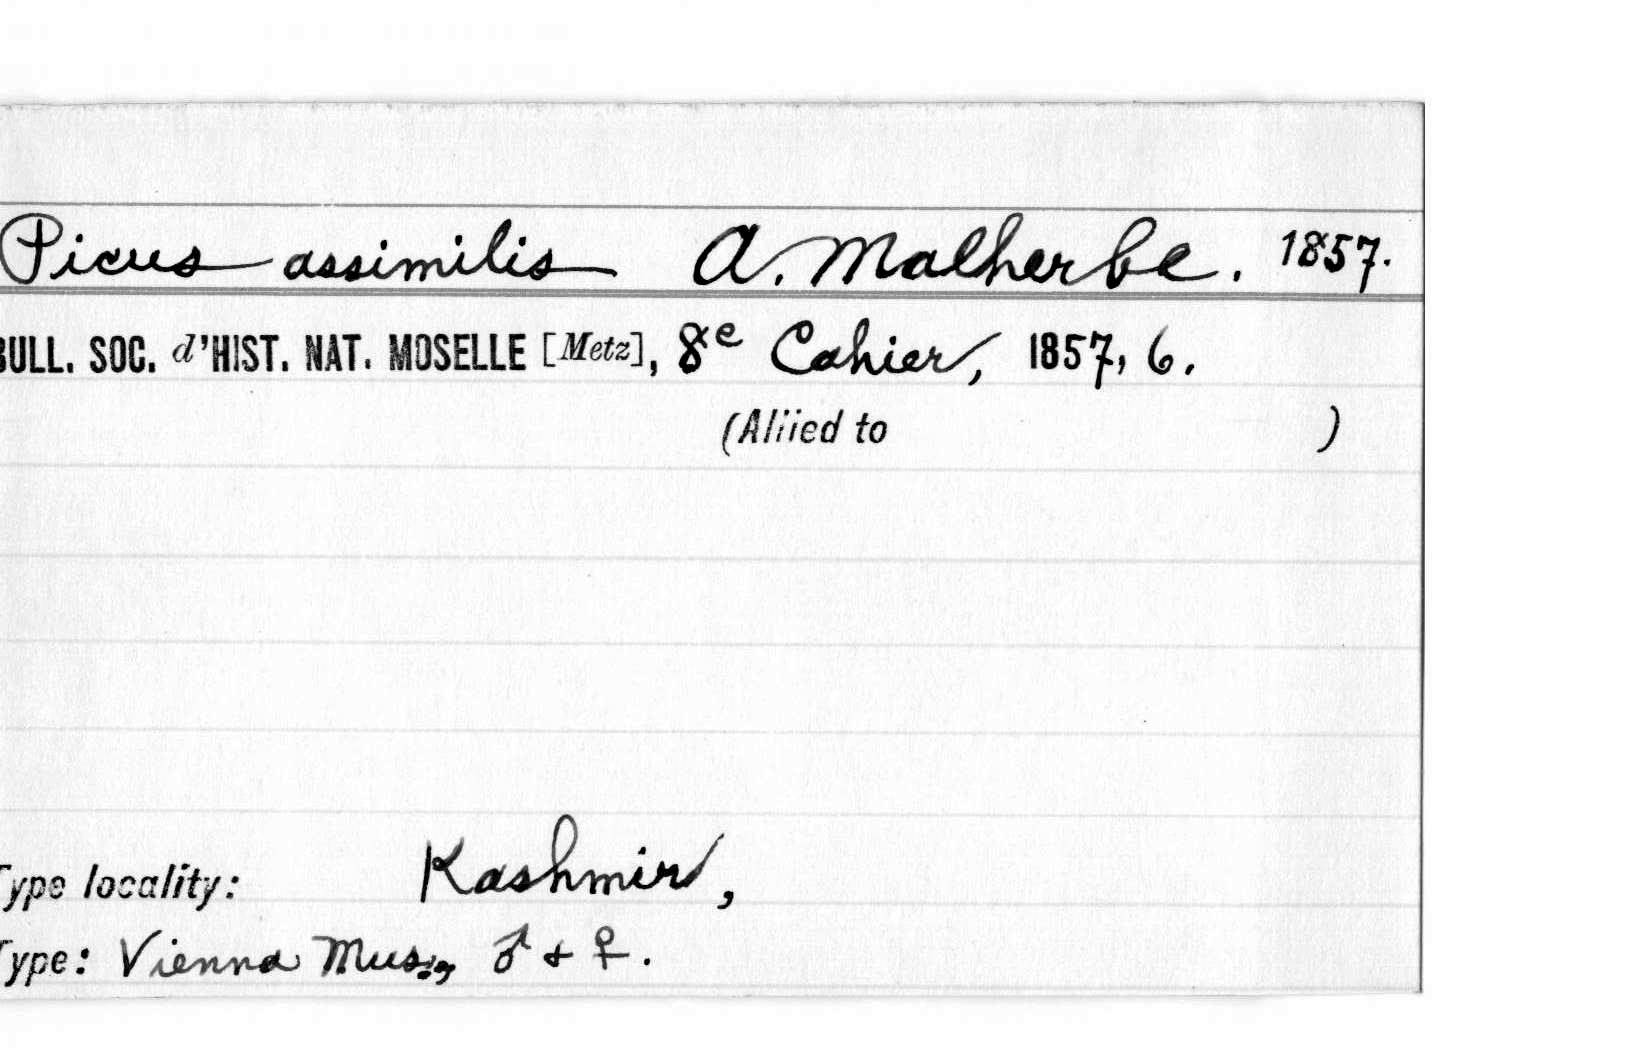 Picus assimilis A. Malherbe. 1857.
BULL. SOC. d'HIST. NAT. MOSELLE [Metz], 8e Cahier, 1857, 6.
(Allied to )
Type locality: Kashmir,
Type: Vienna Mus., ♂ + ♀.